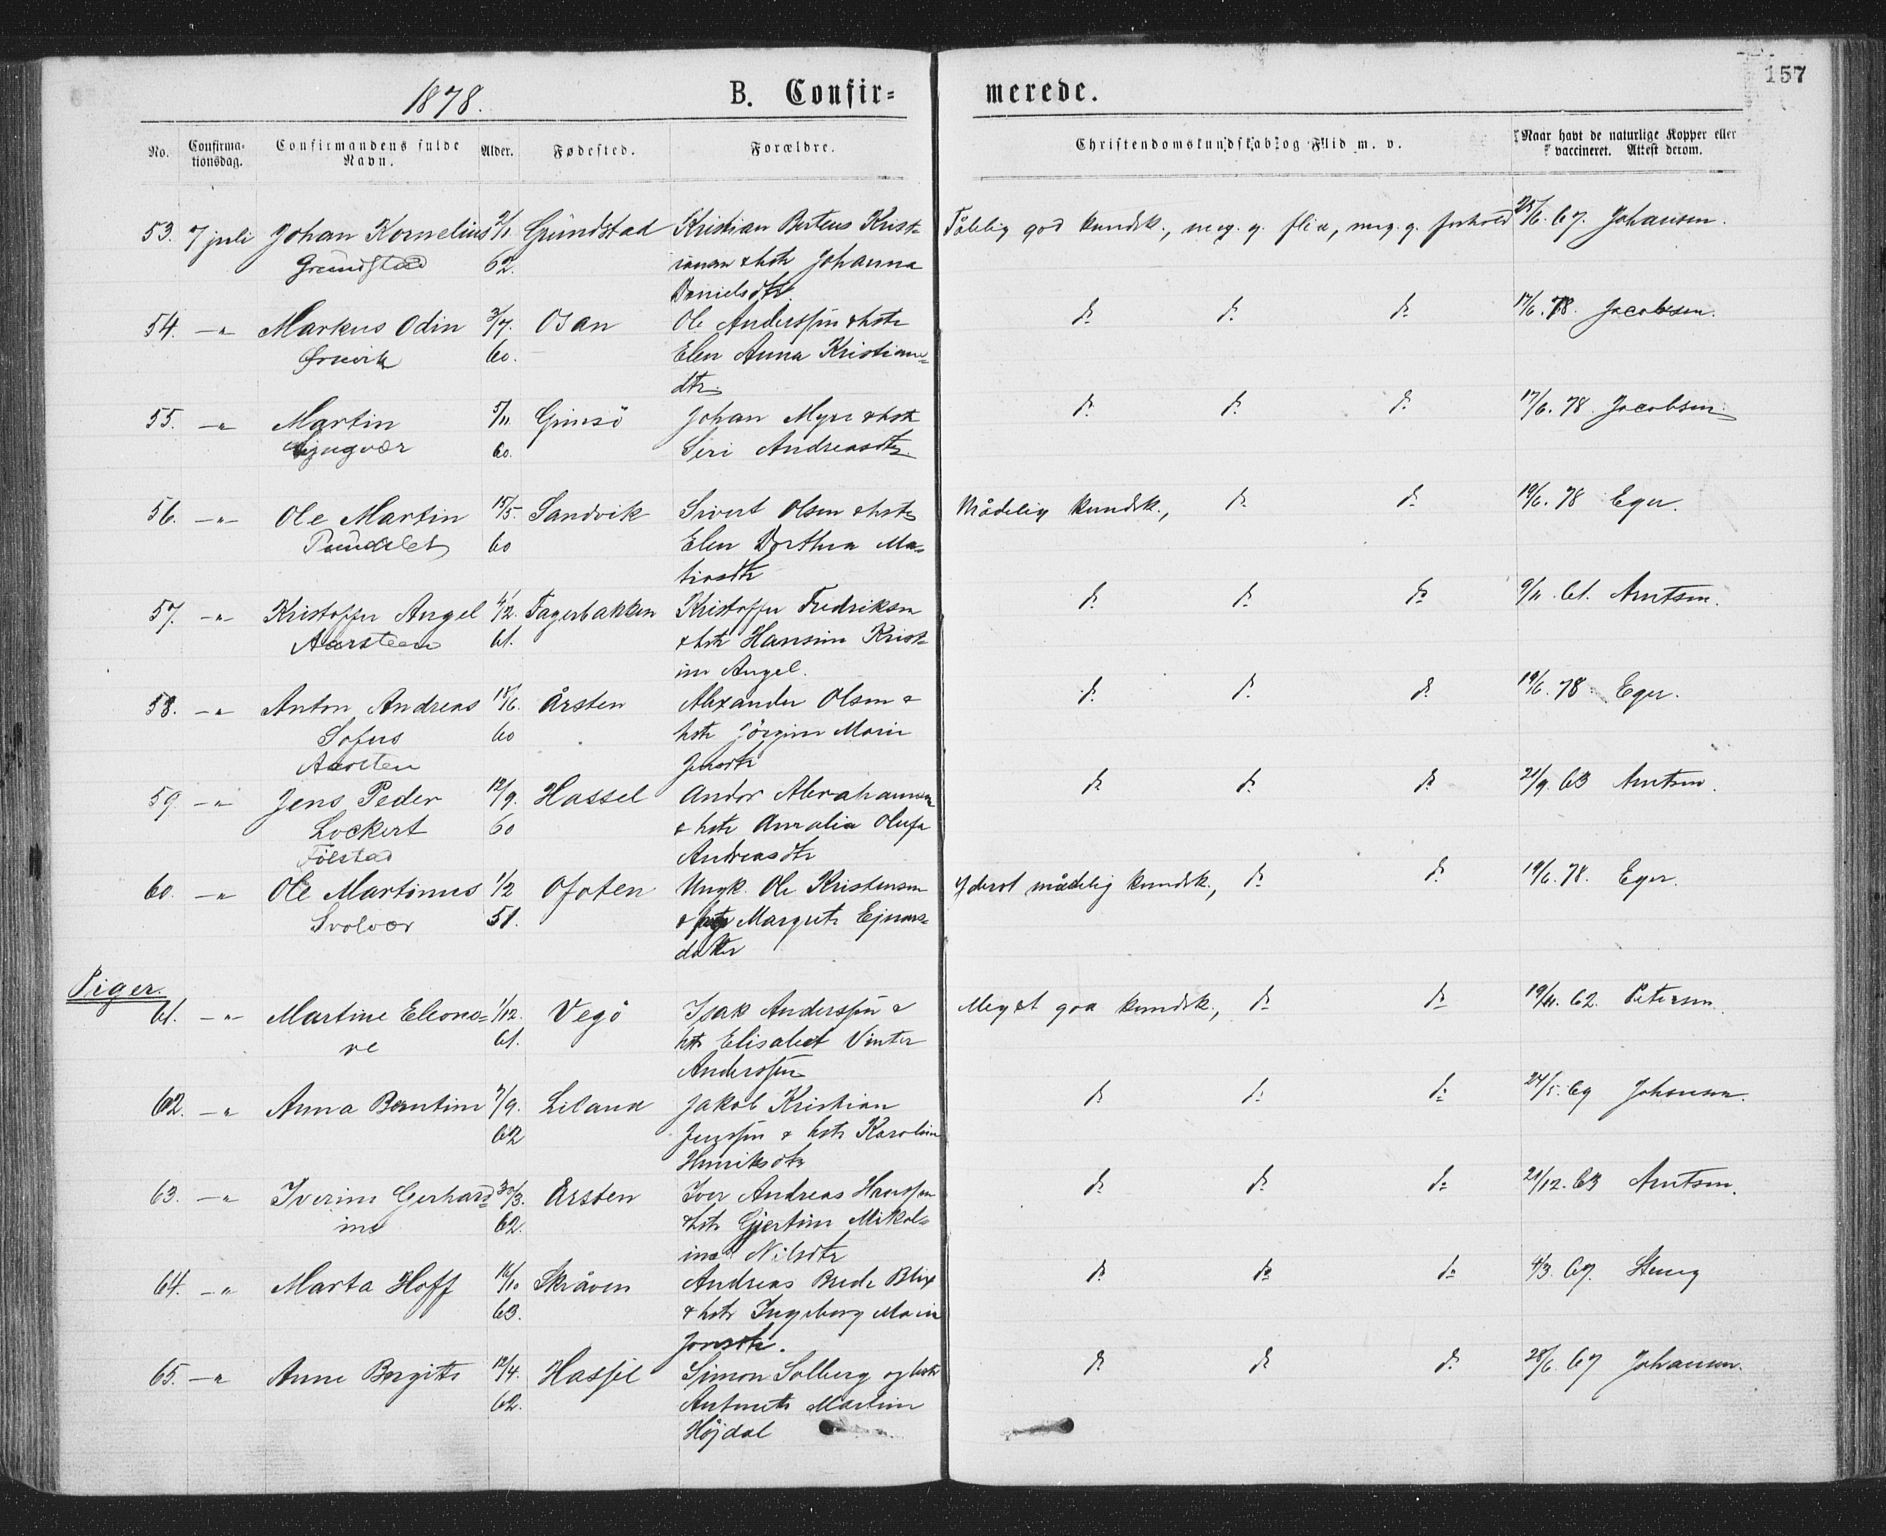 157
1878. B. Confir= merede.
No. Confirma-tionsdag. Confirmandens fulde Navn. Alder. Fødested. Forældre. Christendomskundskab og Flid m. v. Naar havt de naturlige Kopper eller vaccineret. Attest derom.
53. 7 juli Johan Kornelius 2/1 Grundstad Kristian Berteus Krist= Tålelig god kundsk., meg. g. flid, meg. g. forhold 25/6. 67. Johansen.
Grundstad 62. iansen & hstr Johanna
Danielsdtr.
54. -"- Markus Odin 3/7. Osan Ole Anderssen & hstr d: d: d: 17/6. 78. Jacobsen.
Ørsvik 60. Elen Anna Kristians=
dtr.
55. -"- Martin 5/11 Gimsö Johan Myre & hstr d: d: d: 17/6. 78. Jacobsen.
60. Siri Andreasdtr.
56. -"- Ole Martin 15/5. Sandvik Sivert Olsen & hstr Mådelig kundsk., d: d: 19/6. 78 Eger.
60 Elen Dorthea Ma=
tiasdtr
57. -"- Kristoffer Angel 4/12. Fagerbakken Kristoffer Fredriksen d: d: d: 9/11. 61. Arntsen.
Aarsteen 61. & hstr Hansine Krist=
ine Angel.
58. -"- Anton Andreas 18/6. Årsten Alexander Olsen & d: d: d: 19/6. 78. Eger.
Sofus 60 hstr Jörgine Marie
Aarsten Jensdtr
59. -"- Jens Peder 12/9. Hassel Andor Abrahamsen d: d: d: 21/9. 63 Arntsen.
Lockert 60 & hstr Amalia Olufa
Følstad Andreasdtr
60. -"- Ole Martinus 1/2 Ofoten Ungk. Ole Kristensen Yderst mådelig kundsk., d: d: 19/6. 78. Eger.
Svolvær 51. & Margrete Ejnars=
datter
Piger.
61. -"- Martine Eleono= 1/12. Vegö Isak Anderssen & Meget god kundsk., d: d: 19/11. 62. Petersen.
re 61. hstr Elisabet Vinter
Anderssen
62. -"- Anna Berntine 7/9. Liland Jakob Kristian d: d: d: 24/5. 69 Johansen.
62 Jenssen & hstr Karoline
Henriksdtr
63. -"- Iverine Gerhard= 30/3. Årsten Iver Andreas Hanssen d: d: d: 21/12. 63 Arntsen.
ine 62. & hstr Gjertine Mikol=
ine Nilsdtr
64. -"- Marta Hoff 16/10 Skråven Andreas Brede Blix d: d: d: 4/3. 67.
63. & hstr Ingeborg Marie
Jonsdtr.
65. -"- Anne Bergitte 12/4. Hassel Simon Solberg og hstr d: d: d: 28/6. 67 Johansen.
62. Antonette Martine
Höjdal